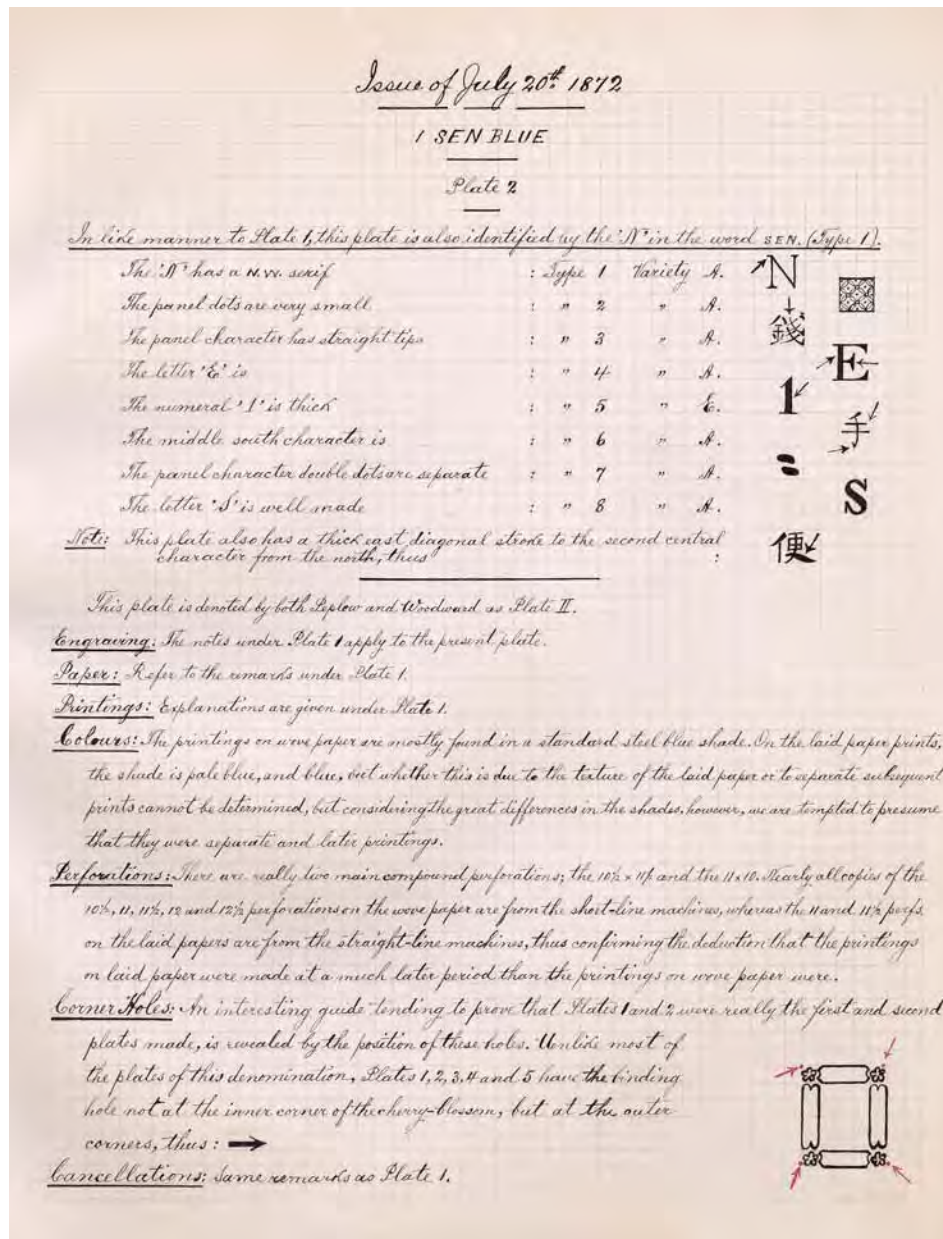 Issue of July 20th 1872
1 SEN BLUE
Plate 2
In like manner to Plate 1, this plate is also identified by the 'N' in the word SEN. (Type 1).
The 'N' has a N.W. serif : Type 1 Variety A. N
The panel dots are very small : " 2 " A.
The panel character has straight tips : " 3 " A. 錢
The letter 'E' is : " 4 " A. E
The numeral '1' is thick : " 5 " E. 1
The middle south character is : " 6 " A. 手
The panel character double dots are separate : " 7 " A.
The letter 'S' is well made : " 8 " A. S
Note: This plate also has a thick east diagonal stroke to the second central
character from the north, thus : 便
This plate is denoted by both Peplow and Woodward as Plate II.
Engraving: The notes under Plate 1 apply to the present plate.
Paper: Refer to the remarks under Plate 1.
Printings: Explanations are given under Plate 1.
Colours: The printings on wove paper are mostly found in a standard steel blue shade. On the laid paper prints,
the shade is pale blue, and blue, but whether this is due to the texture of the laid paper or to separate subsequent
prints cannot be determined, but considering the great differences in the shades, however, we are tempted to presume
that they were separate and later printings.
Perforations: There are really two main compound perforations; the 10½ x 11½ and the 11 x 10. Nearly all copies of the
10½, 11, 11½, 12 and 12½ perforations on the wove paper are from the short-line machines, whereas the 11 and 11½ perfs.
on the laid papers are from the straight-line machines, thus confirming the deduction that the printings
on laid paper were made at a much later period than the printings on wove paper were.
Corner Holes: An interesting guide tending to prove that Plates 1 and 2 were really the first and second
plates made, is revealed by the position of these holes. Unlike most of
the plates of this denomination, Plates 1, 2, 3, 4 and 5 have the binding
hole not at the inner corner of the cherry-blossom, but at the outer
corners, thus: →
Cancellations: Same remarks as Plate 1.